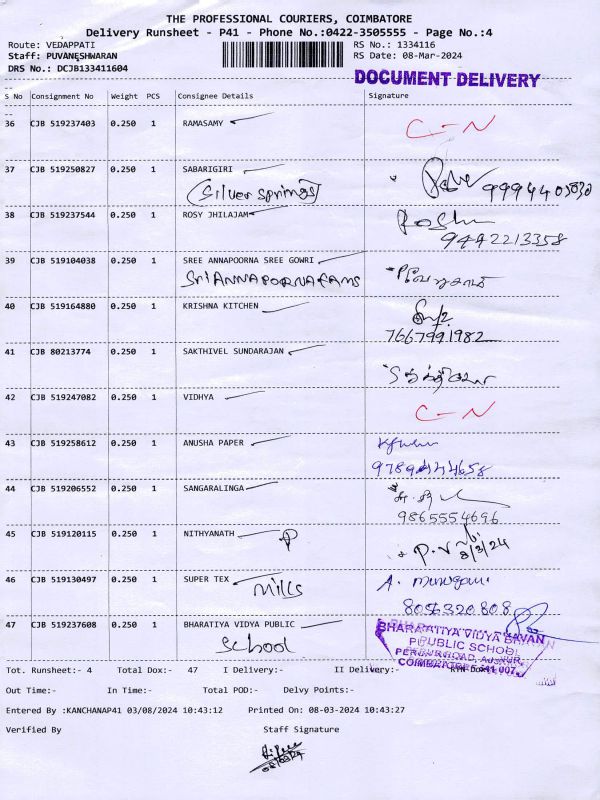 THE PROFESSIONAL COURIERS, COIMBATORE
Delivery Runsheet - P41 - Phone No.:0422-3505555 - Page No.:4
Route: VEDAPPATI RS No.: 1334116
Staff: PUVANESHWARAN RS Date: 08-Mar-2024
DRS No.: DCJB133411604 DOCUMENT DELIVERY
S No Consignment No Weight PCS Consignee Details Signature
36 CJB 519237403 0.250 1 RAMASAMY C-N
37 CJB 519250827 0.250 1 SABARIGIRI
(Silver Springs)
38 CJB 519237544 0.250 1 ROSY JHILAJAM
9442213358
39 CJB 519104038 0.250 1 SREE ANNAPOORNA SREE GOWRI
Sri ANNAPOORNA
40 CJB 519164880 0.250 1 KRISHNA KITCHEN
7667991982
41 CJB 80213774 0.250 1 SAKTHIVEL SUNDARAJAN
42 CJB 519247082 0.250 1 VIDHYA C-N
43 CJB 519258612 0.250 1 ANUSHA PAPER
44 CJB 519206552 0.250 1 SANGARALINGA
9865554696
45 CJB 519120115 0.250 1 NITHYANATH P
8/3/24
46 CJB 519130497 0.250 1 SUPER TEX A. murugan
Mills
8056320808
47 CJB 519237608 0.250 1 BHARATIYA VIDYA PUBLIC
School
BHARATIYA VIDYA BAVAN
PUBLIC SCHOOL
COIMBATORE-641 007.
Tot. Runsheet:- 4 Total Dox:- 47 I Delivery:- II Delivery:-
Out Time:- In Time:- Total POD:- Delvy Points:-
Entered By :KANCHANAP41 03/08/2024 10:43:12 Printed On: 08-03-2024 10:43:27
Verified By Staff Signature